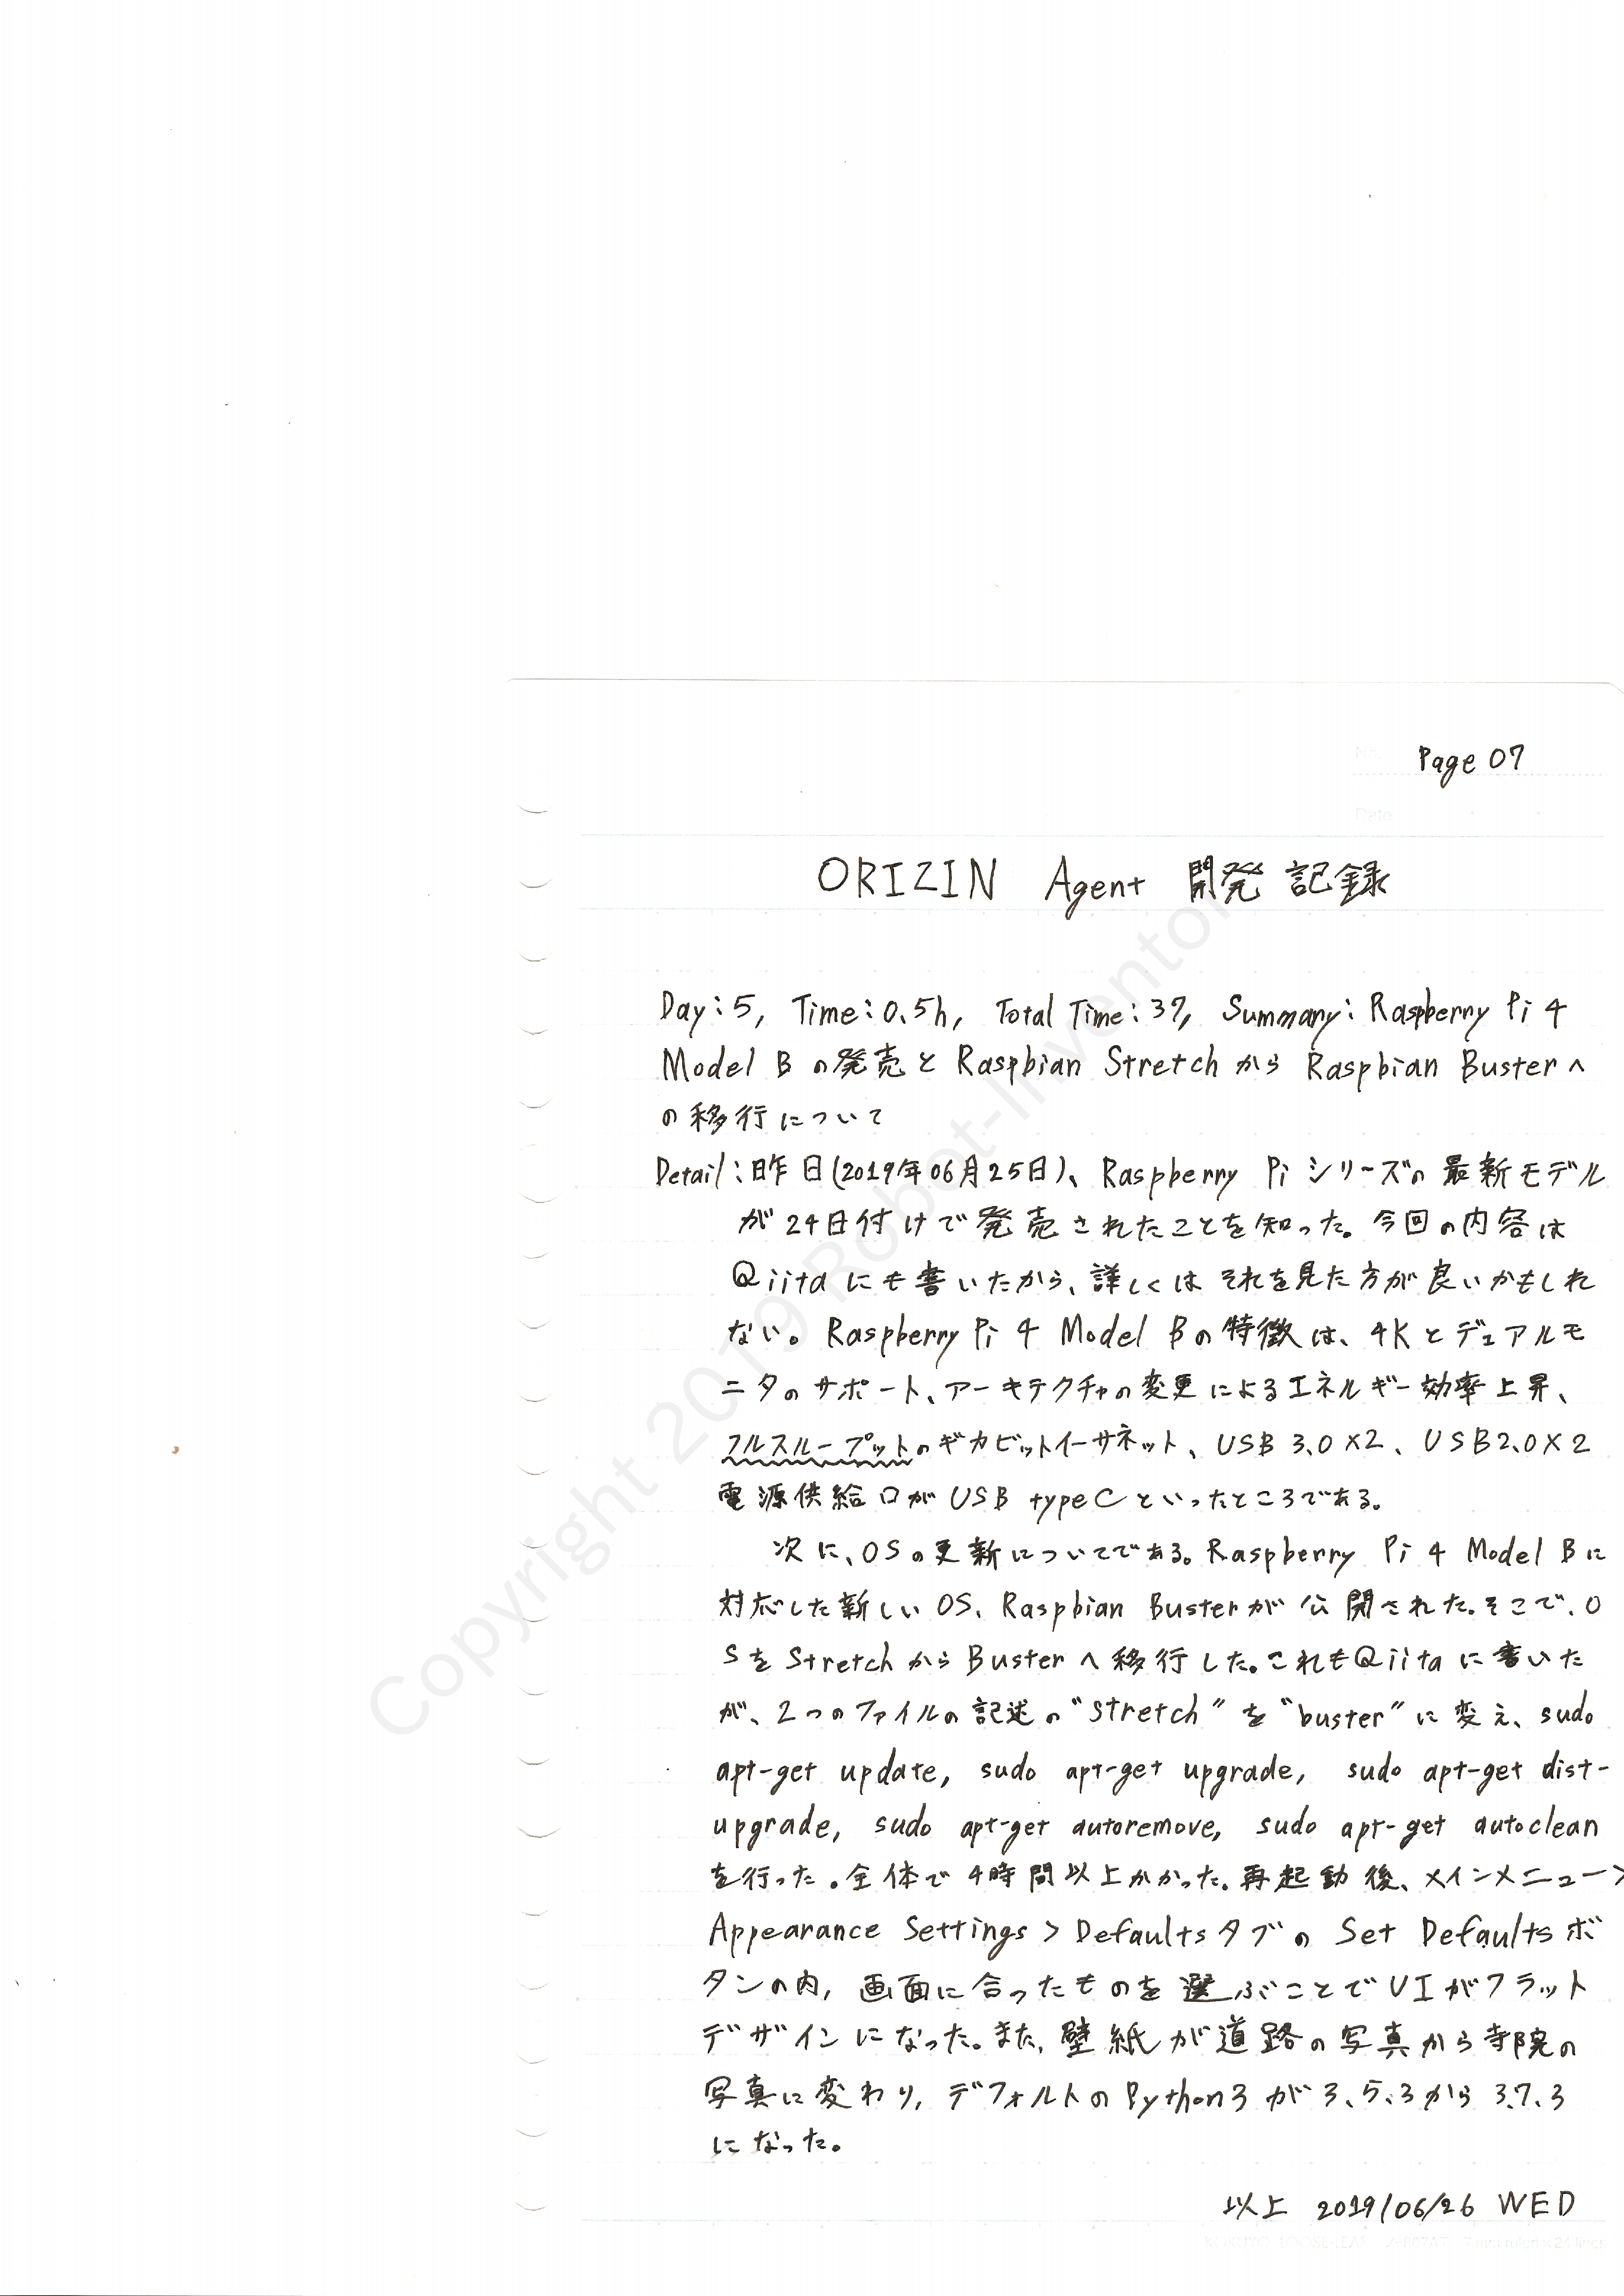 Page 07
ORIZIN Agent 開発記録
Day:5, Time:0.5h, Total Time:37, Summary:Raspberry Pi 4
Model B の発売と Raspbian Stretch から Raspbian Buster へ
の移行について
Detail:昨日(2019年06月25日)、Raspberry Pi シリーズの最新モデル
が24日付けで発売されたことを知った。今回の内容は
Qiitaにも書いたから、詳しくはそれを見た方が良いかもしれ
ない。Raspberry Pi 4 Model Bの特徴は、4Kとデュアルモ
ニタのサポート、アーキテクチャの変更によるエネルギー効率上昇、
フルスループットのギガビットイーサネット、USB 3.0×2、USB2.0×2
電源供給口がUSB typeCといったところである。
次に、OSの更新についてである。Raspberry Pi 4 Model Bに
対応した新しいOS、Raspbian Busterが公開された。そこで、O
SをStretchからBusterへ移行した。これもQiitaに書いた
が、2つのファイルの記述の"stretch"を"buster"に変え、sudo
apt-get update, sudo apt-get upgrade, sudo apt-get dist-
upgrade, sudo apt-get autoremove, sudo apt-get autoclean
を行った。全体で4時間以上かかった。再起動後、メインメニュー>
Appearance Settings > DefaultsタブのSet Defaultsボ
タンの内, 画面に合ったものを選ぶことでUIがフラット
デザインになった。また, 壁紙が道路の写真から寺院の
写真に変わり, デフォルトのPython3が3.5.3から3.7.3
になった。
以上 2019/06/26 WED
Copyright 2019 Robot-Inventor